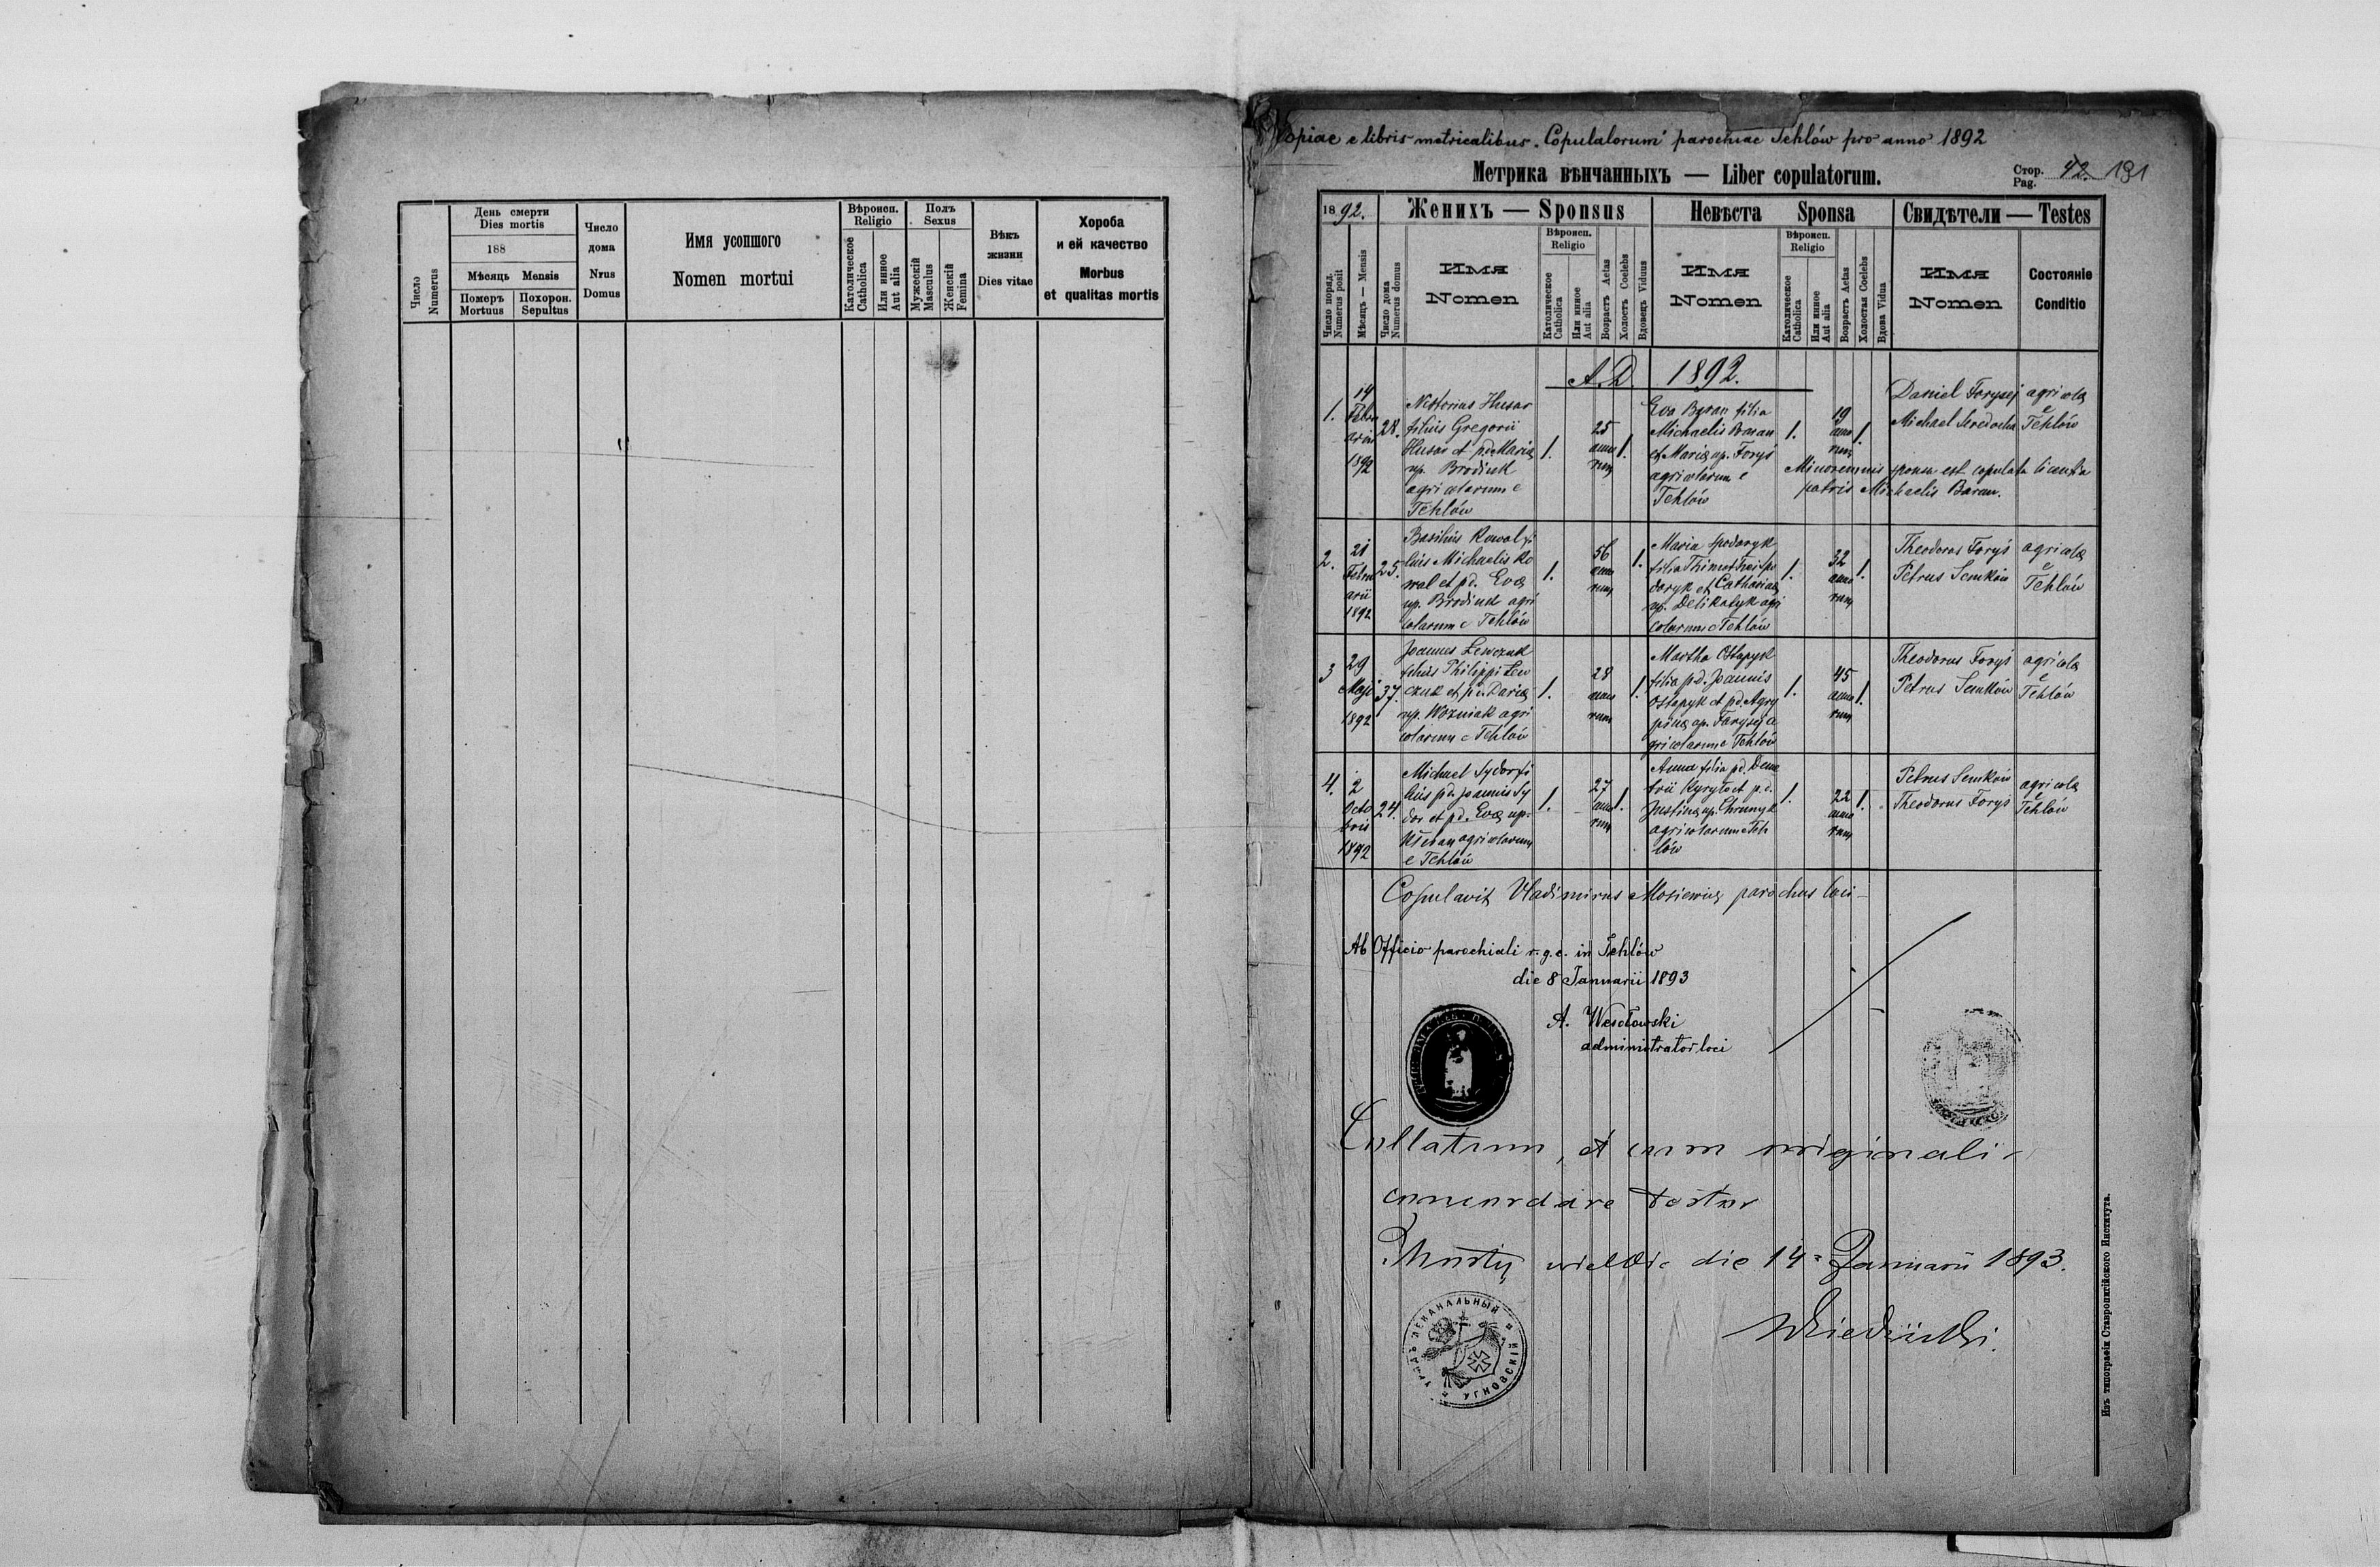 День смерти
Dies mortis
188
Мѣсяць Mensis
Число
Numerus
Померъ
Mortuus
Похорон.
Sepultus
Число
дома
Nrus
Domus
Имя усопшого
Nomen mortui
Вѣроисп.
Religio
Католическое
Catholica
Или инное
Aut alia
Полъ
Sexus
Мужескій
Masculus
Женскій
Femina
Вѣкъ
жизни
Dies vitae
Хороба
и ей качество
Morbus
et qualitas mortis
Copiae e libris metricalibus Copulatorum parochiae Tehlów pro anno 1892
Метрика вѣнчанныхъ — Liber copulatorum.
Стор.
Pag. 42. 191
1892.
Женихъ — Sponsus
Невѣста Sponsa
Свидѣтели — Testes
Число поряд.
Numerus posit
Мѣсяць — Mensis
Число дома
Numerus domus
Имя
Nomen
Вѣроисп.
Religio
Католическое
Catholica
Или инное
Aut alia
Возрастъ Aetas
Холостъ Coelebs
Вдовецъ Viduus
Имя
Nomen
Вѣроисп.
Religio
Католическое
Catholica
Или инное
Aut alia
Возрастъ Aetas
Холостая Coelebs
Вдова Vidua
Имя
Nomen
Состояніе
Conditio
A. D. 1892.
1.
14
Febru
arii
1892
28.
Nestorius Husar
filius Gregorii
Husar et p.d. Mariæ
up. Brodiuk
agricolarum e
Tehlów
1.
25
anno
rum
1.
Eva Baran filia
Michaelis Baran
et Mariæ up. Forys
agricolarum e
Tehlów
1.
19
anno
rum
1.
Daniel Forysej
Michael Seredocha
agricolæ
e
Tehlów
Minorennis sponsa est copulata licentia
patris Michaelis Baran.
2.
21
Febru
arii
1892
25.
Basilius Kowal fi
lius Michaelis Ko
wal et pd. Evæ
up. Brodiuk agri
colarum e Tehlów
1.
56
anno
rum
1.
Maria Spodaryk
filia Thimothei Spo
daryk et Catharinæ
up. Delikatyk agri
colarum e Tehlów
1.
32
anno
rum
1.
Theodorus Forys
Petrus Semków
agricolæ
e
Tehlów
3
29
Maji
1892
37.
Joannes Lewczuk
filius Philippi Lew
czuk et p.d. Dariæ
up. Wozniak agri
colarum e Tehlów
1.
28
anno
rum
1.
Martha Ostapyk
filia p.d. Joannis
Ostapyk et pd. Agry
pinæ up. Forysej a
gricolarum e Tehlów
1.
45
anno
rum
1.
Theodorus Forys
Petrus Semków
agricolæ
e
Tehlów
4.
2
Octo
bris
1892
24.
Michael Sydor fi
lius pd. Joannis Sy
dor et pd. Evæ up.
agricolarum
e Tehlów
1.
27
anno
rum
1.
Anna filia pd. Deme
trii Kyryło et p.d.
Justinæ up. Chrunyk
agricolarum e Teh
lów
1.
22
anno
rum
1.
Petrus Semków
Theodorus Forys
agricolæ
e
Tehlów
Copulavit Vladimirus Mosiewicz parochus loci
Ab Officio parochiali r. g. c. in Tehlów
die 8 Januarii 1893
A. Wesołowski
administrator loci
Collatum, et cum originali
concordare testor
die 14 Januarii 1893.
УРЯДЪ ДЕКАНАЛЬНЫЙ УГНОВСКІЙ
Изъ типографіи Ставропигійского Института.